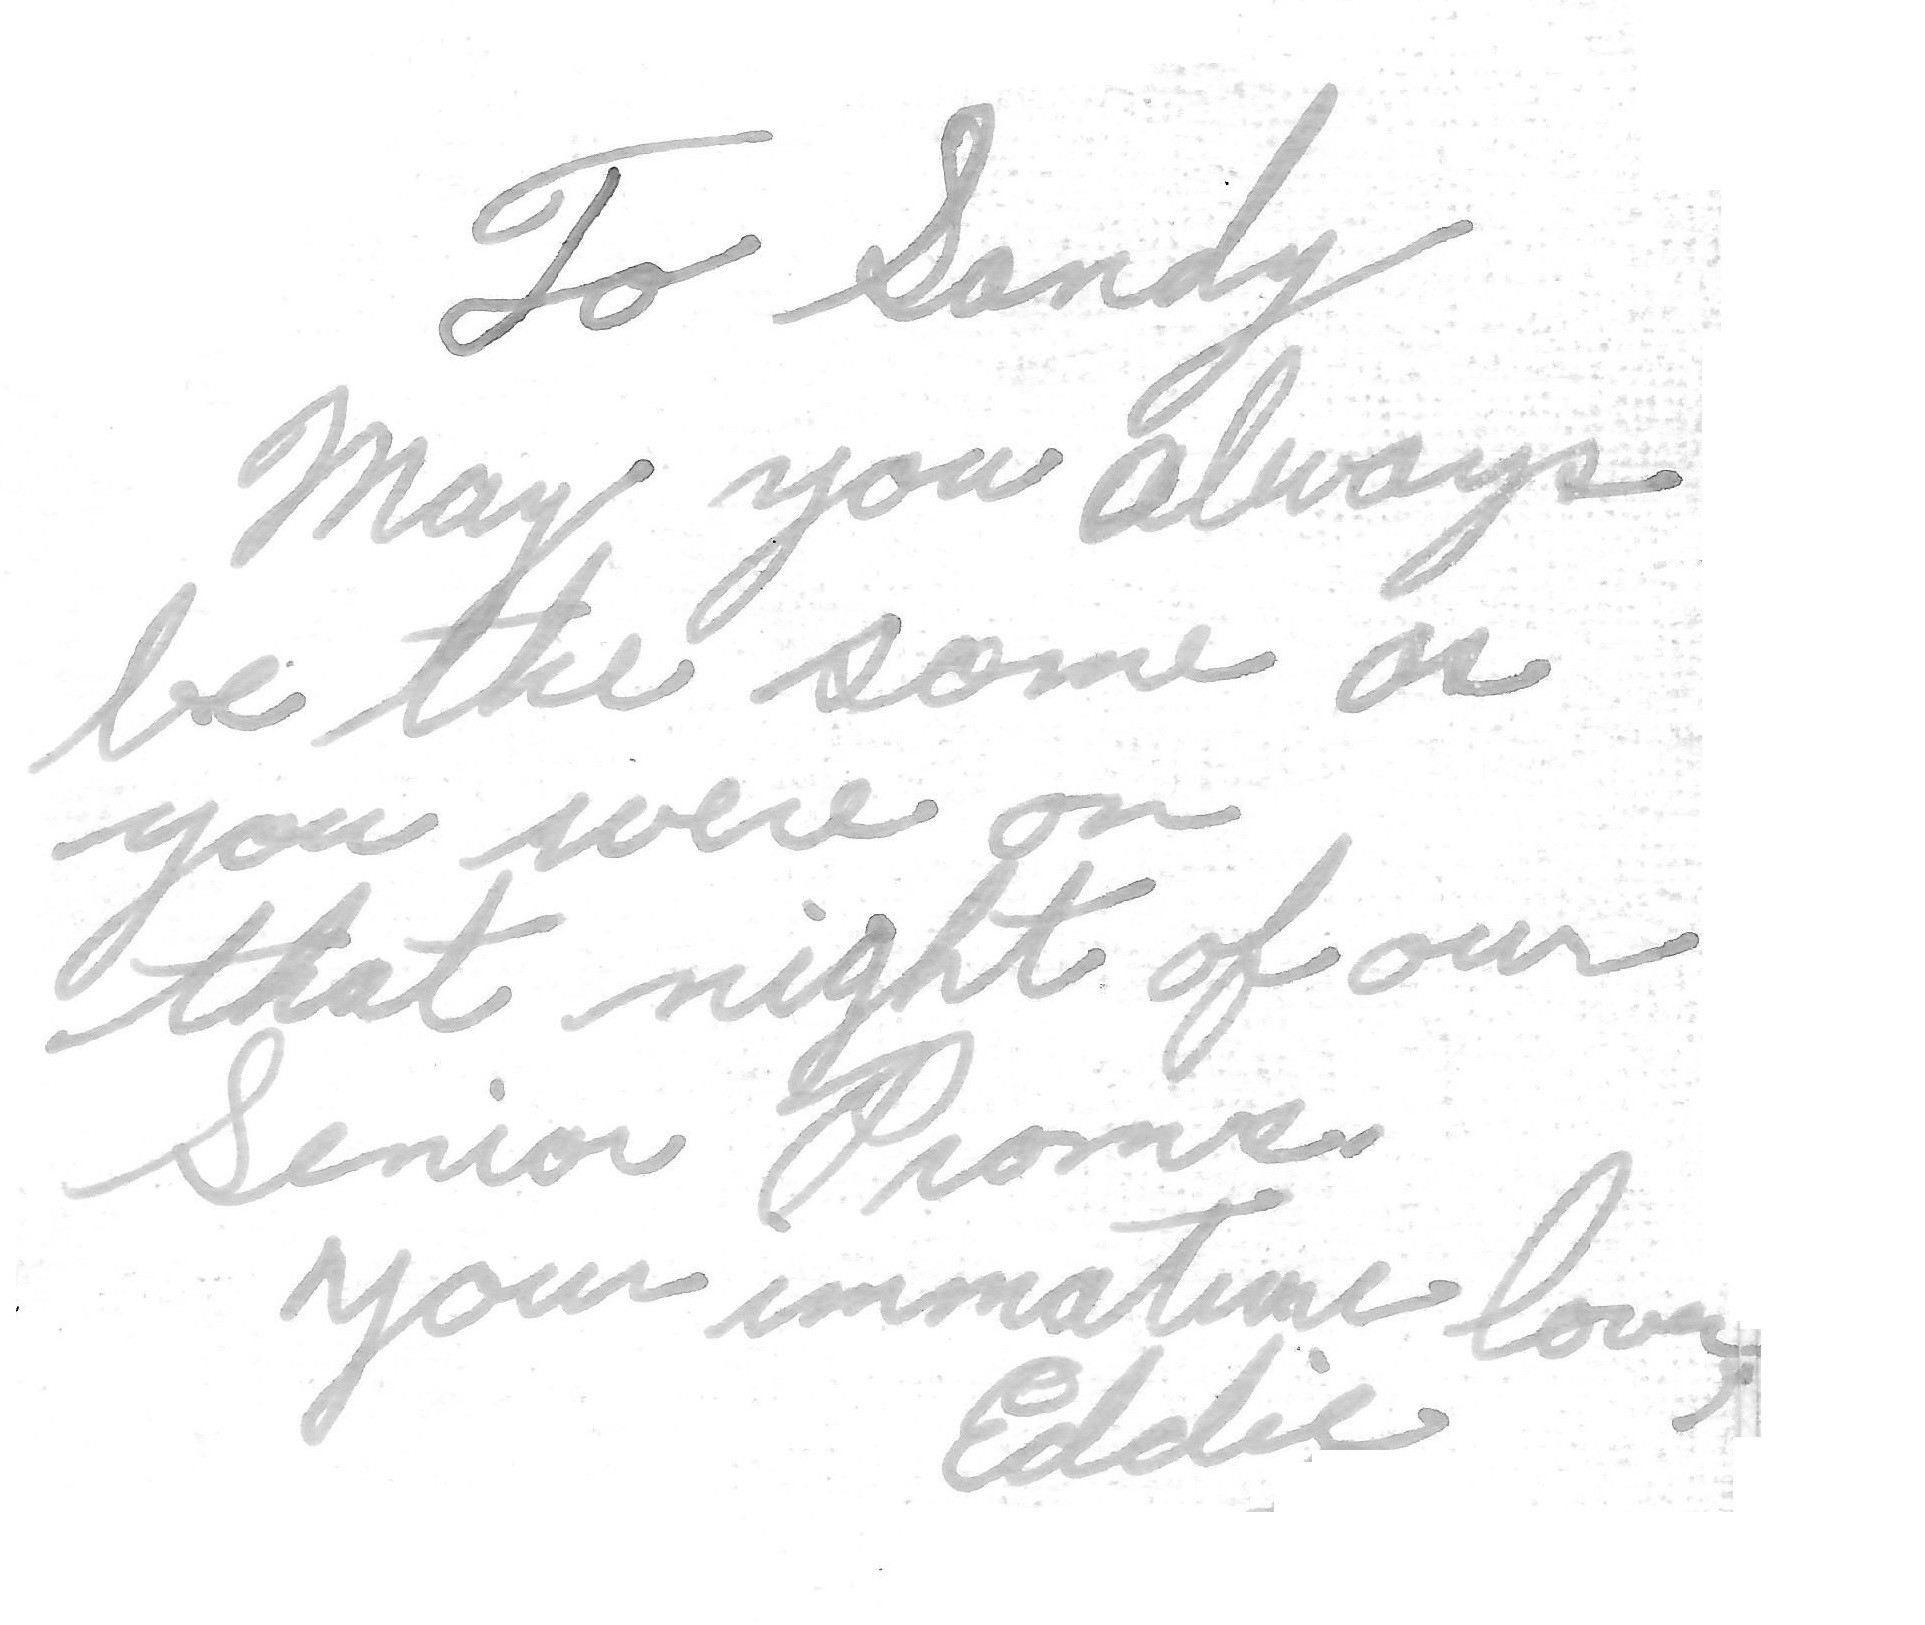 To Sandy
May you always
be the same as
you were on
that night of our
Senior Prom.
Your immature lover,
Eddie